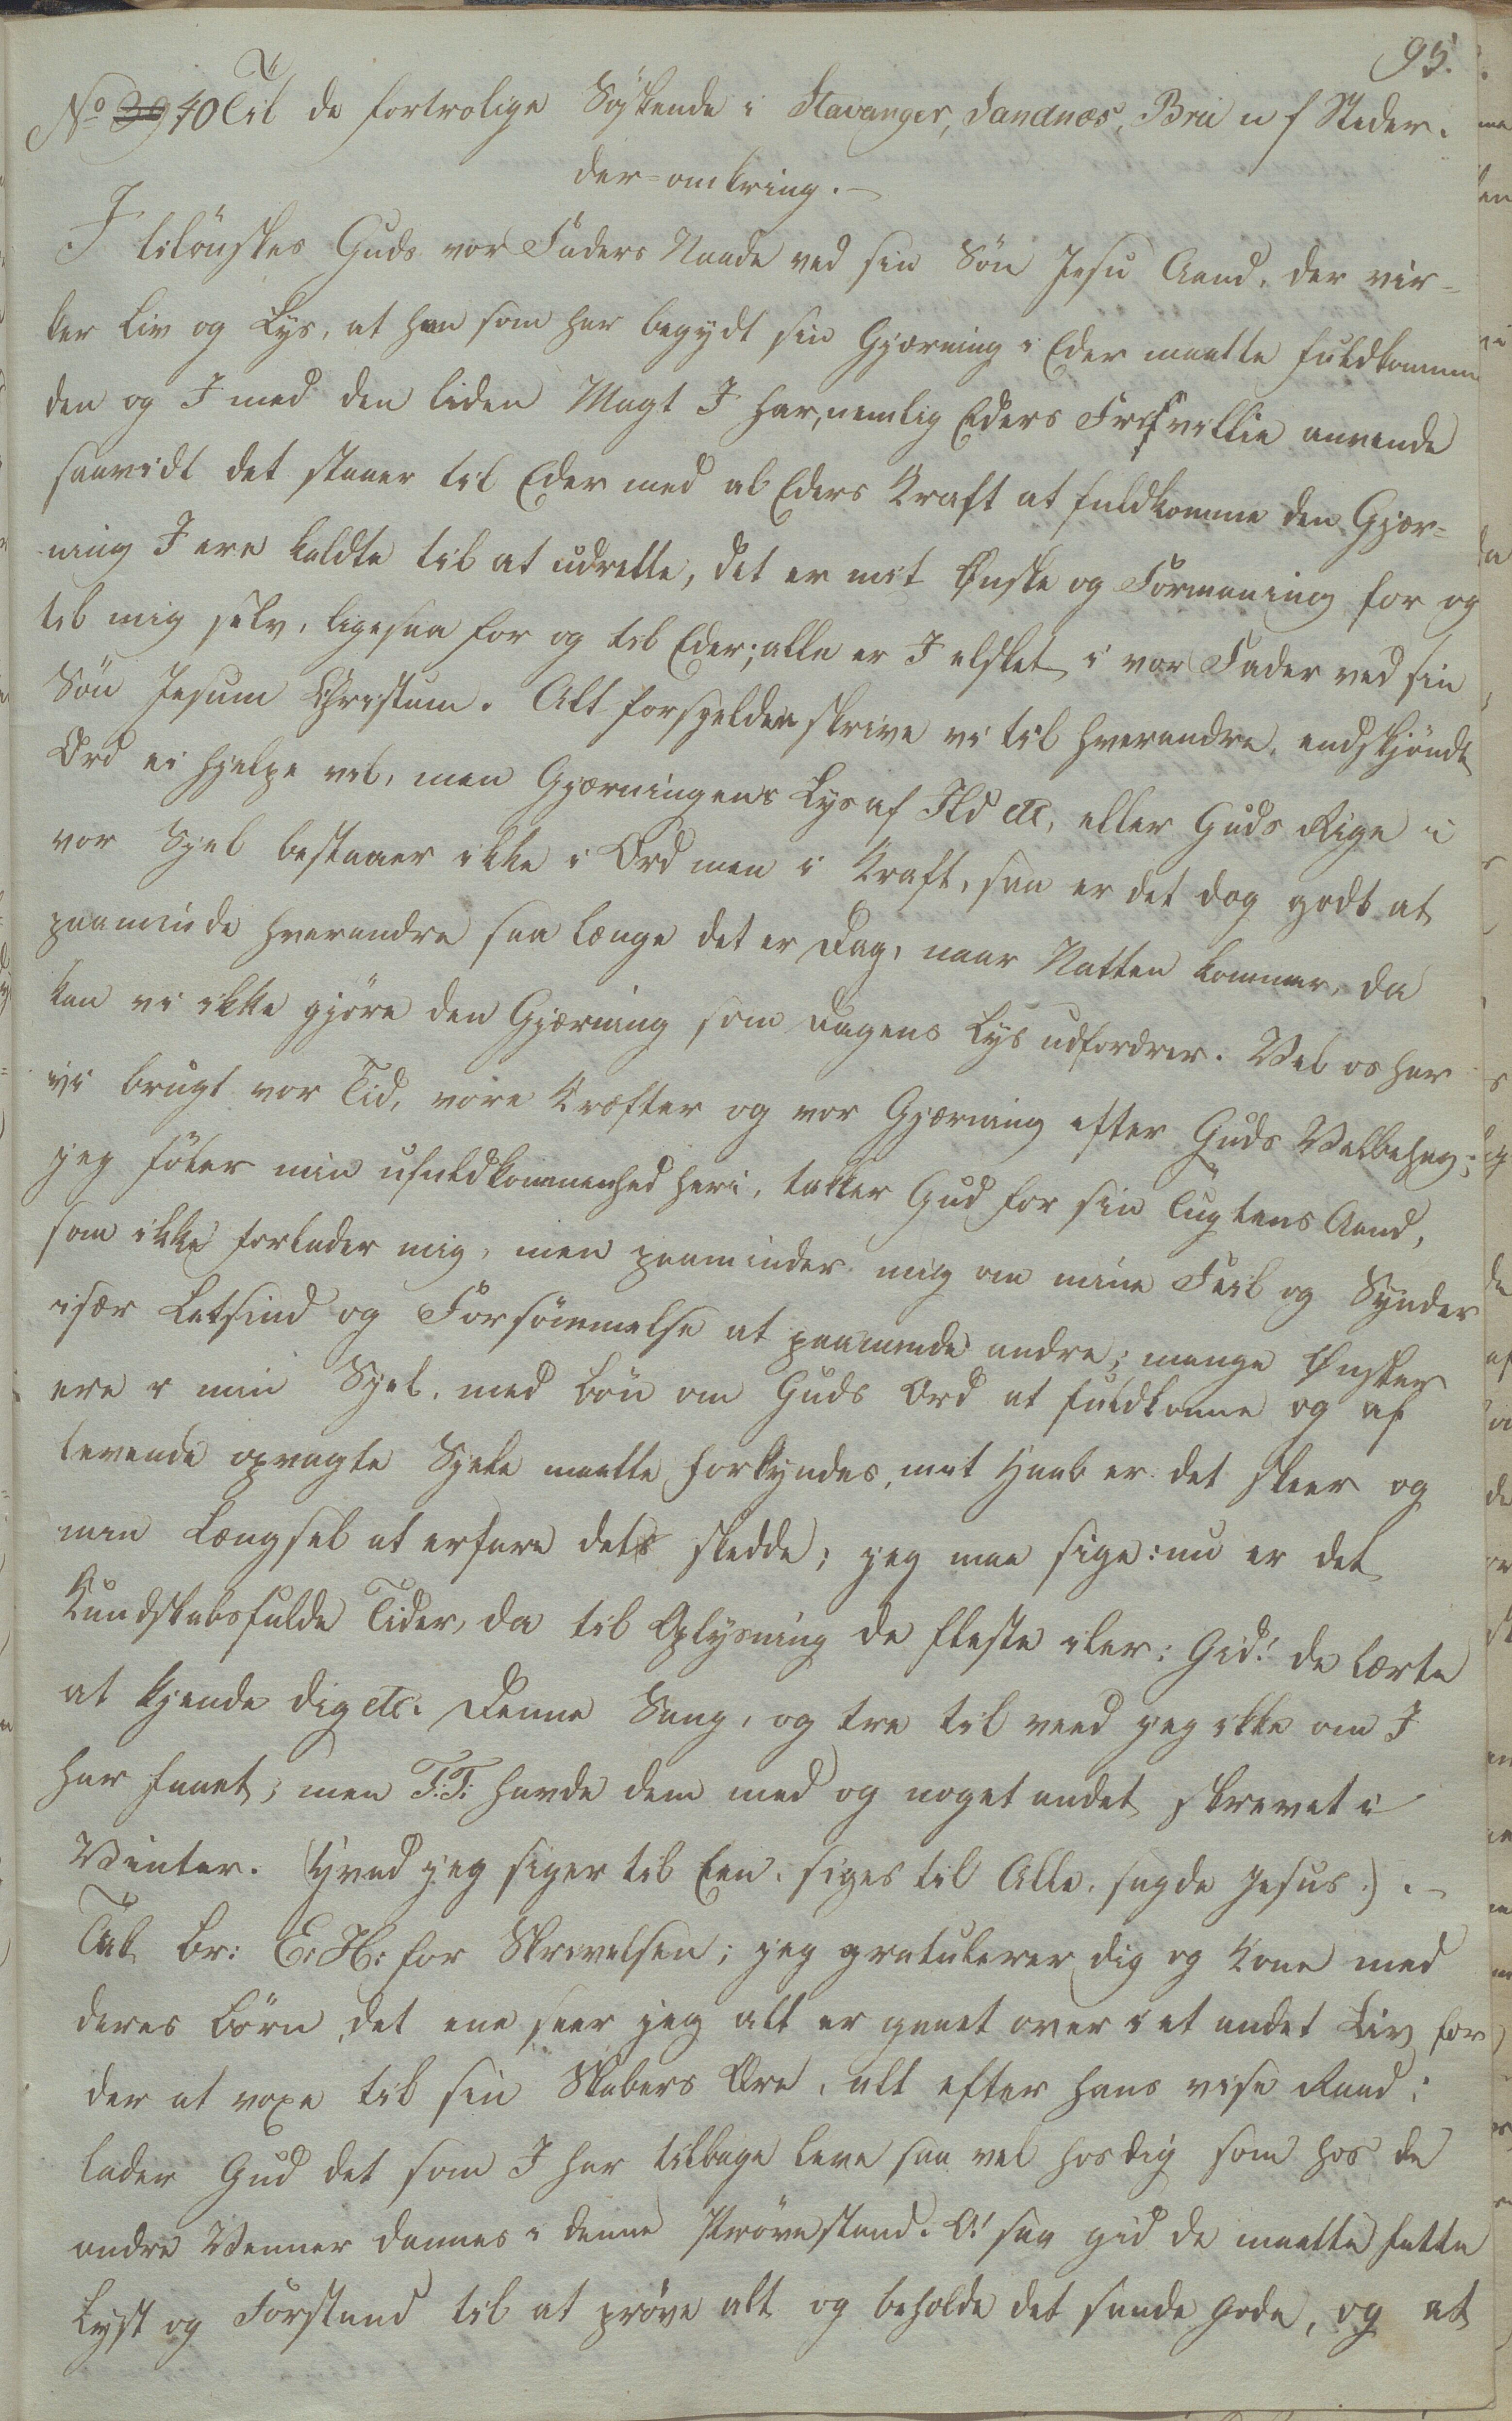 95.
No 39 40 Til de fortrolige Søskende i Stavanger, Sandnæs, Brü u f Steder.
der-omkring.-
I tilönskes Guds vor Faders Naade ved sin Sön Jesu Aand, der vir-
ker Liv og Lys, at han som har begydt sin Gjærning i Eder maatte fuldkomme
den og I med den liden Magt I har, nemlig Eders Frihvillie anvende
saavidt det staaer til Eder med al Eders Kraft at fuldkomme den Gjær-
ning I ere kaldte til at udrette, det er mit Ønske og Formaning for og
til mig selv, ligesaa for og til Eder; alle er I elsket i vor Fader ved sin
Sön Jesum Christum. Alt forsjelden skrive vi til hverandre, endskjöndt
Ord ei hjelpe vil, men Gjærningens Lys af Ild etc, eller Guds Rige i
vor Sjel bestaaer ikke i Ord men i Kraft, saa er det dog godt at
paaminde hverandre saa længe det er Dag, naar Natten kommer, da
kan vi ikke gjöre den Gjærning som Dagens Lys udfordrer. Vel os har
vi brugt vor Tid, vore Kræfter og vor Gjærning efter Guds Velbehag;
jeg föler min ufuldkommenhed heri, takker Gud for sin Tugtens Aand,
som ikke forlader mig, men paaminder mig om mine Feil og Synder
især Letsind og Forsömmelse at paaminde andre; mange Ønsker
ere i min Sjel, med Bön om Guds Ord at fuldkomme og af
levende opvagte Sjele maatte forkyndes, mit Haab er det skeer og
min Længsel at erfare dets skedde; jeg maa sige: nu er det
Kundskabsfulde Tider, da til Oplysning de fleste iler: Gid! de lærte
at kjende dig etc. Denne Sang, og tre til veed jeg ikke om I
har faaet; men T:T: havde dem med og noget andet skrevet i
Vinter. (hvad jeg siger til Een, siges til Alle, sagde Jesus.) .-
Tak Br: E:H: for Skrivelsen; jeg gratulerer dig og Kone med
deres Börn, det ene seer jeg alt er gaaet over i et andet Liv for
der at voxe til sin Skabers Ære, alt efter hans vise Raad;
lader Gud det som I har tilbage leve saa vel hos dig som hos de
andre Venner dannes i denne Prövestand. O! saa gid de maatte fatte
Lyst og Forstand til at pröve alt og beholde det sande Gode, og at